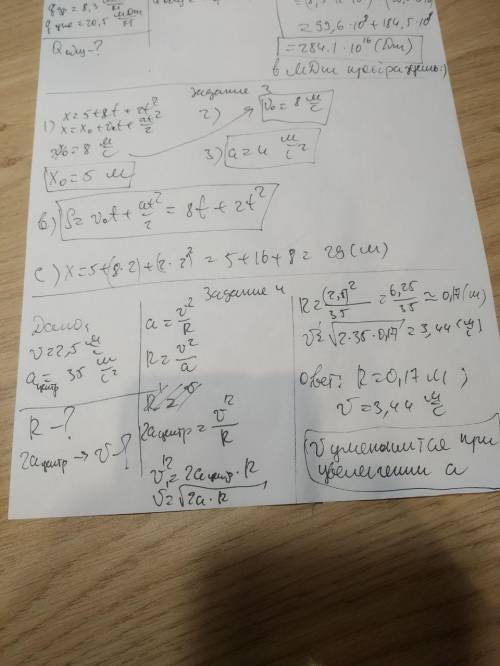 = 8,3
= 20,5
Q общ - ?
≈ 99,6·10⁸ + 184,5·10⁸
= 284.1·10¹⁶ (Дж)
Задание 3
1) x = 5 + 8t + 2t²
x = x₀ + v₀t + at²/2
v₀ = 8 м/с
x₀ = 5 м
2) v₀ = 8 м/с
3) a = 4 м/с²
в) S = v₀t + at²/2 = 8t + 2t²
с) x = 5 + (8·2) + (2·2²) = 5 + 16 + 8 = 29 (м)
Задание 4
Дано:
v = 2,5 м/с
a центр = 35 м/с²
R - ?
2a центр → v - ?
a = v²/R
R = v²/a
2a центр = v'²/R
v'² = 2a центр · R
v = √2a·R
R = (2,5)²/35 = 6,25/35 ≈ 0,17 (м)
v' = √2·35·0,17 = 3,44 (м/с)
ответ: R = 0,17 м;
v = 3,44 м/с
v уменьшится при
увеличении a